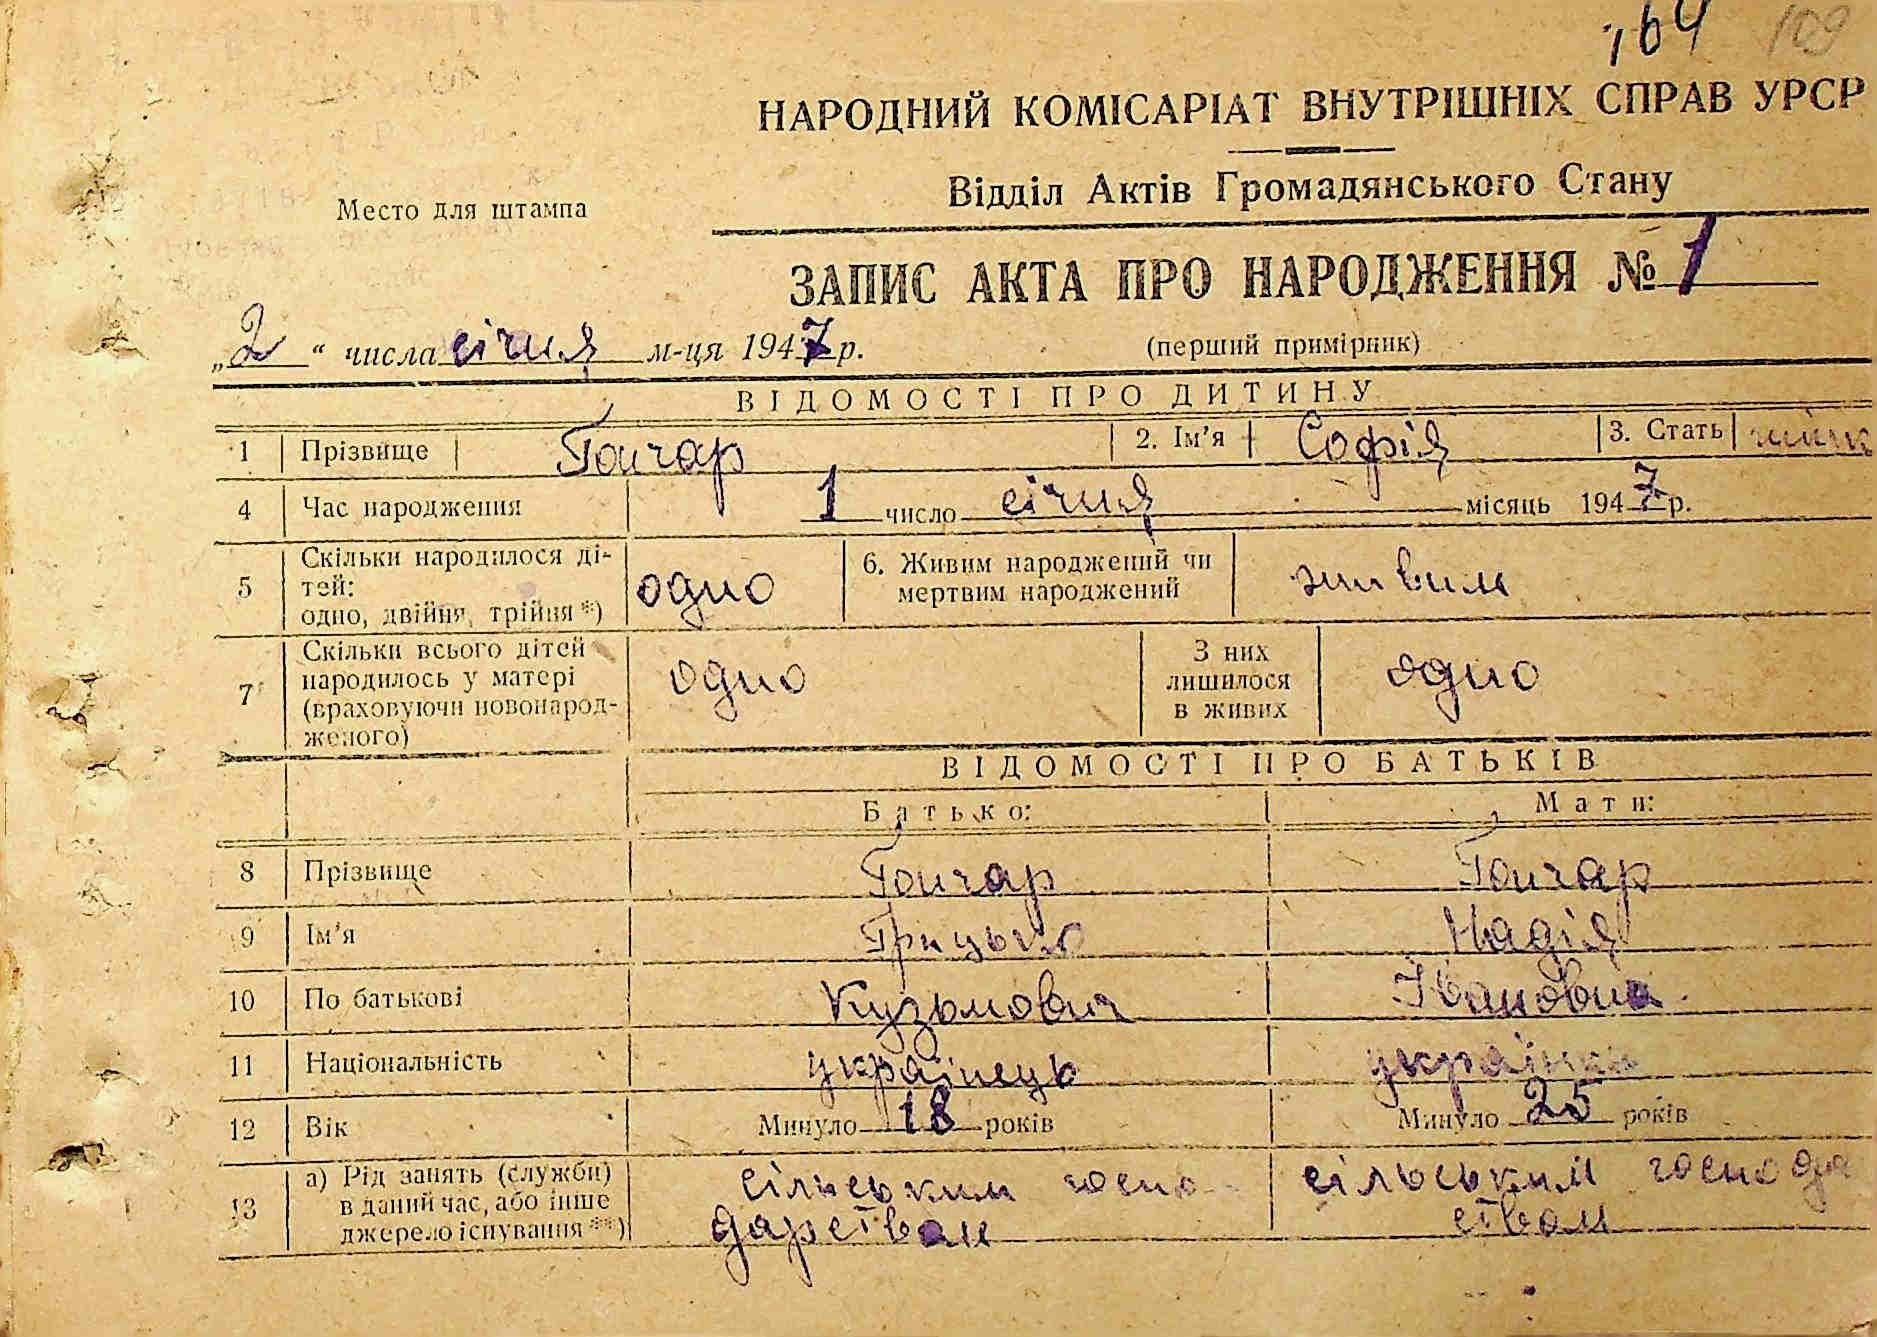 164 109
НАРОДНИЙ КОМІСАРІАТ ВНУТРІШНІХ СПРАВ УРСР
Відділ Актів Громадянського Стану
Место для штампа
ЗАПИС АКТА ПРО НАРОДЖЕННЯ № 1
„2“ числа січня м-ця 1947 р.
(перший примірник)
ВІДОМОСТІ ПРО ДИТИНУ
1 Прізвище Гончар 2. Ім'я Софія 3. Стать жінк
4 Час народження 1 число січня місяць 1947 р.
5 Скільки народилося ді-
тей:
одно, двійня, трійня *) одно 6. Живим народжений чи
мертвим народжений живим
7 Скільки всього дітей
народилось у матері
(враховуючи новонарод-
женого) одно З них
лишилося
в живих одно
ВІДОМОСТІ ПРО БАТЬКІВ
Батько: Мати:
8 Прізвище Гончар Гончар
9 Ім'я Грицько Надія
10 По батькові Кузьмович Івановна
11 Національність українець українка
12 Вік Минуло 18 років Минуло 25 років
13 а) Рід занять (служби)
в даний час, або інше
джерело існування **) сільським госпо-
дарством сільським господа
ством